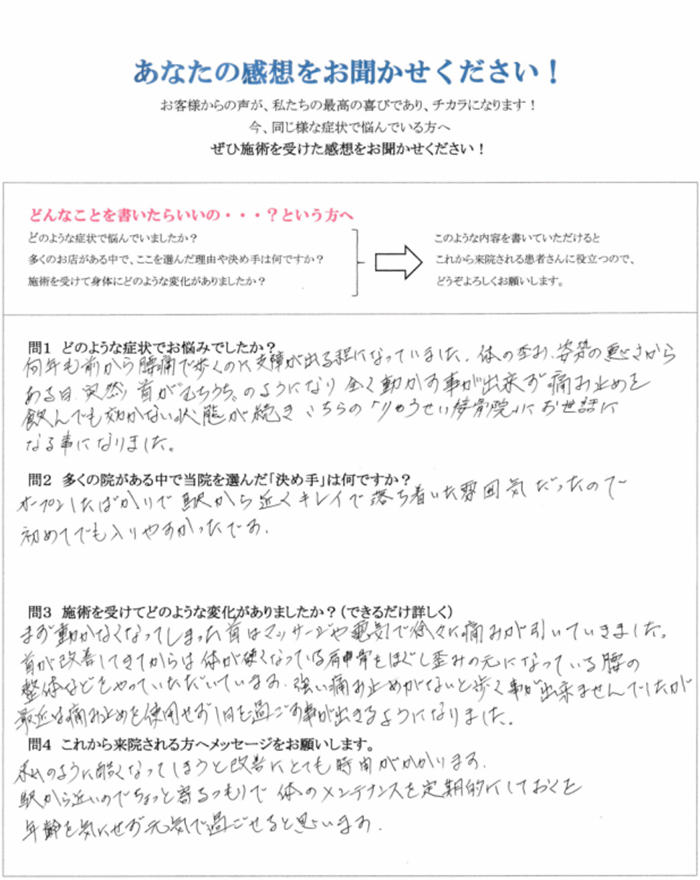 あなたの感想をお聞かせください！
お客様からの声が、私たちの最高の喜びであり、チカラになります！
今、同じ様な症状で悩んでいる方へ
ぜひ施術を受けた感想をお聞かせください！
どんなことを書いたらいいの・・・？という方へ
どのような症状で悩んでいましたか？
多くのお店がある中で、ここを選んだ理由や決め手は何ですか？
施術を受けて身体にどのような変化がありましたか？
このような内容を書いていただけると
これから来院される患者さんに役立つので、
どうぞよろしくお願いします。
問1 どのような症状でお悩みでしたか？
何年も前から腰痛で歩くのに支障が出る程になっていました。体の歪み、姿勢の悪さから
ある日突然首がむちうちのようになり全く動かす事が出来ず痛み止めを
飲んでも効かない状態が続きこちらの「りゅうせい接骨院」にお世話に
なる事になりました。
問2 多くの院がある中で当院を選んだ「決め手」は何ですか？
オープンしたばかりで駅から近くキレイで落ち着いた雰囲気だったので
初めてでも入りやすかったです。
問3 施術を受けてどのような変化がありましたか？（できるだけ詳しく）
まず動かなくなってしまった首はマッサージや電気で徐々に痛みが引いていきました。
首が改善してきてからは体が硬くなっている肩甲骨をほぐし歪みの元になっている腰の
整体などをやっていただいています。強い痛み止めがないと歩く事が出来ませんでしたが
最近は痛み止めを使用せず1日を過ごす事が出きるようになりました。
問4 これから来院される方へメッセージをお願いします。
私のように酷くなってしまうと改善にとても時間がかかります。
駅から近いのでちょっと寄るつもりで体のメンテナンスを定期的にしておくと
年齢を気にせず元気で過ごせると思います。